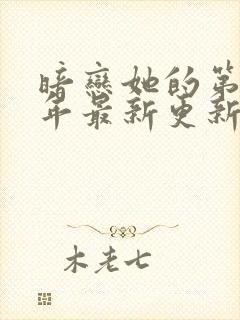 暗戀她的第
年最新更新
木老七